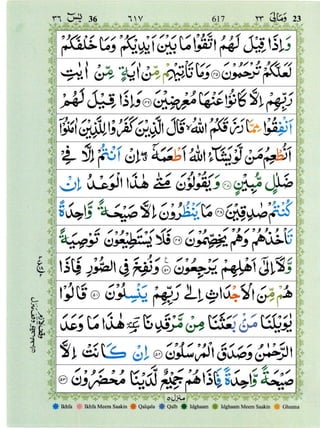 یٰسٓ ٣٦ 36 ٦١٧ 617 ٢٣ وَمَالِیَ 23
وَاِذَا قِيْلَ لَهُمُ اتَّقُوْا مَا بَيْنَ اَيْدِيْكُمْ وَمَا خَلْفَكُمْ
لَعَلَّكُمْ تُرْحَمُوْنَ ﴿٤٥﴾ وَمَا تَاْتِيْهِمْ مِّنْ اٰيَةٍ مِّنْ اٰيٰتِ
رَبِّهِمْ اِلَّا كَانُوْا عَنْهَا مُعْرِضِيْنَ ﴿٤٦﴾ وَاِذَا قِيْلَ لَهُمْ
اَنْفِقُوْا مِمَّا رَزَقَكُمُ اللّٰهُ ۙ قَالَ الَّذِيْنَ كَفَرُوْا لِلَّذِيْنَ اٰمَنُوْٓا
اَنُطْعِمُ مَنْ لَّوْ يَشَآءُ اللّٰهُ اَطْعَمَهٗٓ ۖ اِنْ اَنْتُمْ اِلَّا فِيْ
ضَلٰلٍ مُّبِيْنٍ ﴿٤٧﴾ وَيَقُوْلُوْنَ مَتٰى هٰذَا الْوَعْدُ اِنْ
كُنْتُمْ صٰدِقِيْنَ ﴿٤٨﴾ مَا يَنْظُرُوْنَ اِلَّا صَيْحَةً وَّاحِدَةً
تَاْخُذُهُمْ وَهُمْ يَخِصِّمُوْنَ ﴿٤٩﴾ فَلَا يَسْتَطِيْعُوْنَ تَوْصِيَةً
وَّلَآ اِلٰٓى اَهْلِهِمْ يَرْجِعُوْنَ ﴿٥٠﴾ وَنُفِخَ فِي الصُّوْرِ فَاِذَا
هُمْ مِّنَ الْاَجْدَاثِ اِلٰى رَبِّهِمْ يَنْسِلُوْنَ ﴿٥١﴾ قَالُوْا
يٰوَيْلَنَا مَنْۢ بَعَثَنَا مِنْ مَّرْقَدِنَا ۘ هٰذَا مَا وَعَدَ
الرَّحْمٰنُ وَصَدَقَ الْمُرْسَلُوْنَ ﴿٥٢﴾ اِنْ كَانَتْ اِلَّا
صَيْحَةً وَّاحِدَةً فَاِذَا هُمْ جَمِيْعٌ لَّدَيْنَا مُحْضَرُوْنَ ﴿٥٣﴾
منزل ٥
Ikhfa Ikhfa Meem Saakin Qalqala Qalb Idghaam Idghaam Meem Saakin Ghunna